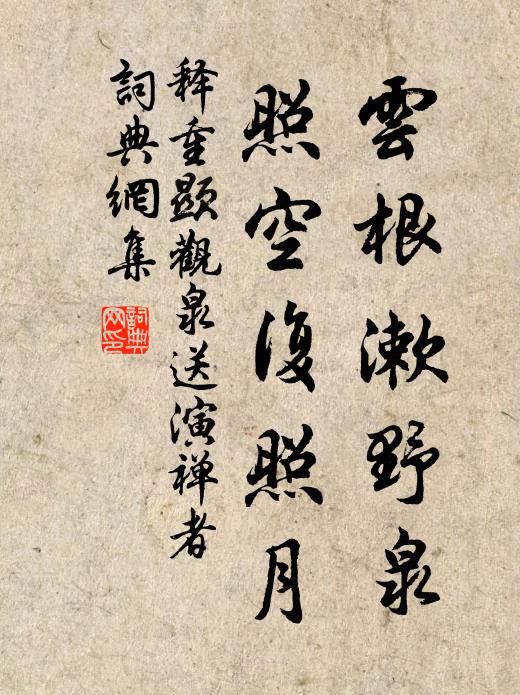 雲根漱野泉
照空復照月
释重顯觀泉送演禅者
詞典網集
詞典网印